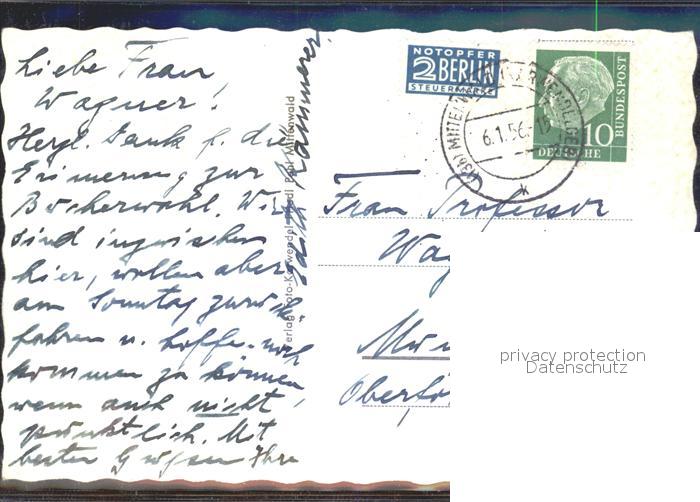 Liebe Frau
Wagner!
Herzl. Dank f. die
Erinnerung zur
Bücherwahl. Wir
sind inzwischen
hier, wollen aber
am Sonntag zurück-
fahren u. hoffe noch
kommen zu können,
wenn auch nicht
pünktlich. Mit
besten Grüßen Ihre
Kammerer.
Verlag Foto-Karwendel
Mittenwald
NOTOPFER
2 BERLIN
STEUERMARKE
6.1.56
k
10
DEUTSCHE
BUNDESPOST
Frau Professor
Wag
Mün
Oberfö
privacy protection
Datenschutz